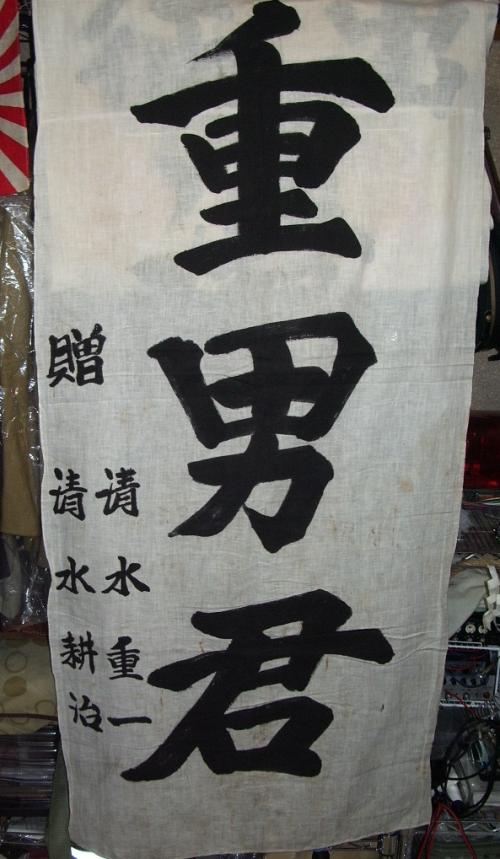 重男君
清水重一
贈 清水耕治